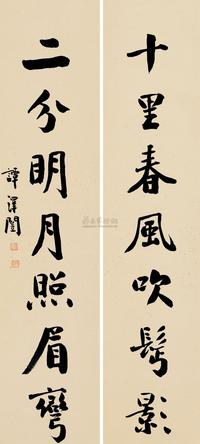 十里春風吹鬓影
二分明月照眉彎
譚澤闓